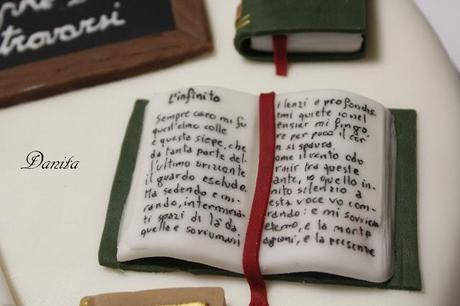 trovarsi
Danita
L'infinito
Sempre caro mi fu
quest'ermo colle
e questa siepe, che
da tanta parte del-
l'ultimo orizzonte
il guardo esclude.
Ma sedendo e mi-
rando, interminа-
ti spazi di là da
quella e sovrumani
ilenzi e profondis
mi quiete io nel
ensier mi fingo,
ve per poco il cor
n si spaura.
ome il vento odo
rmir tra queste
ante, io quello in-
nito silenzio a
esta voce vo com
rando: e mi sovvien
eterno, e la morte
agioni, e la presente